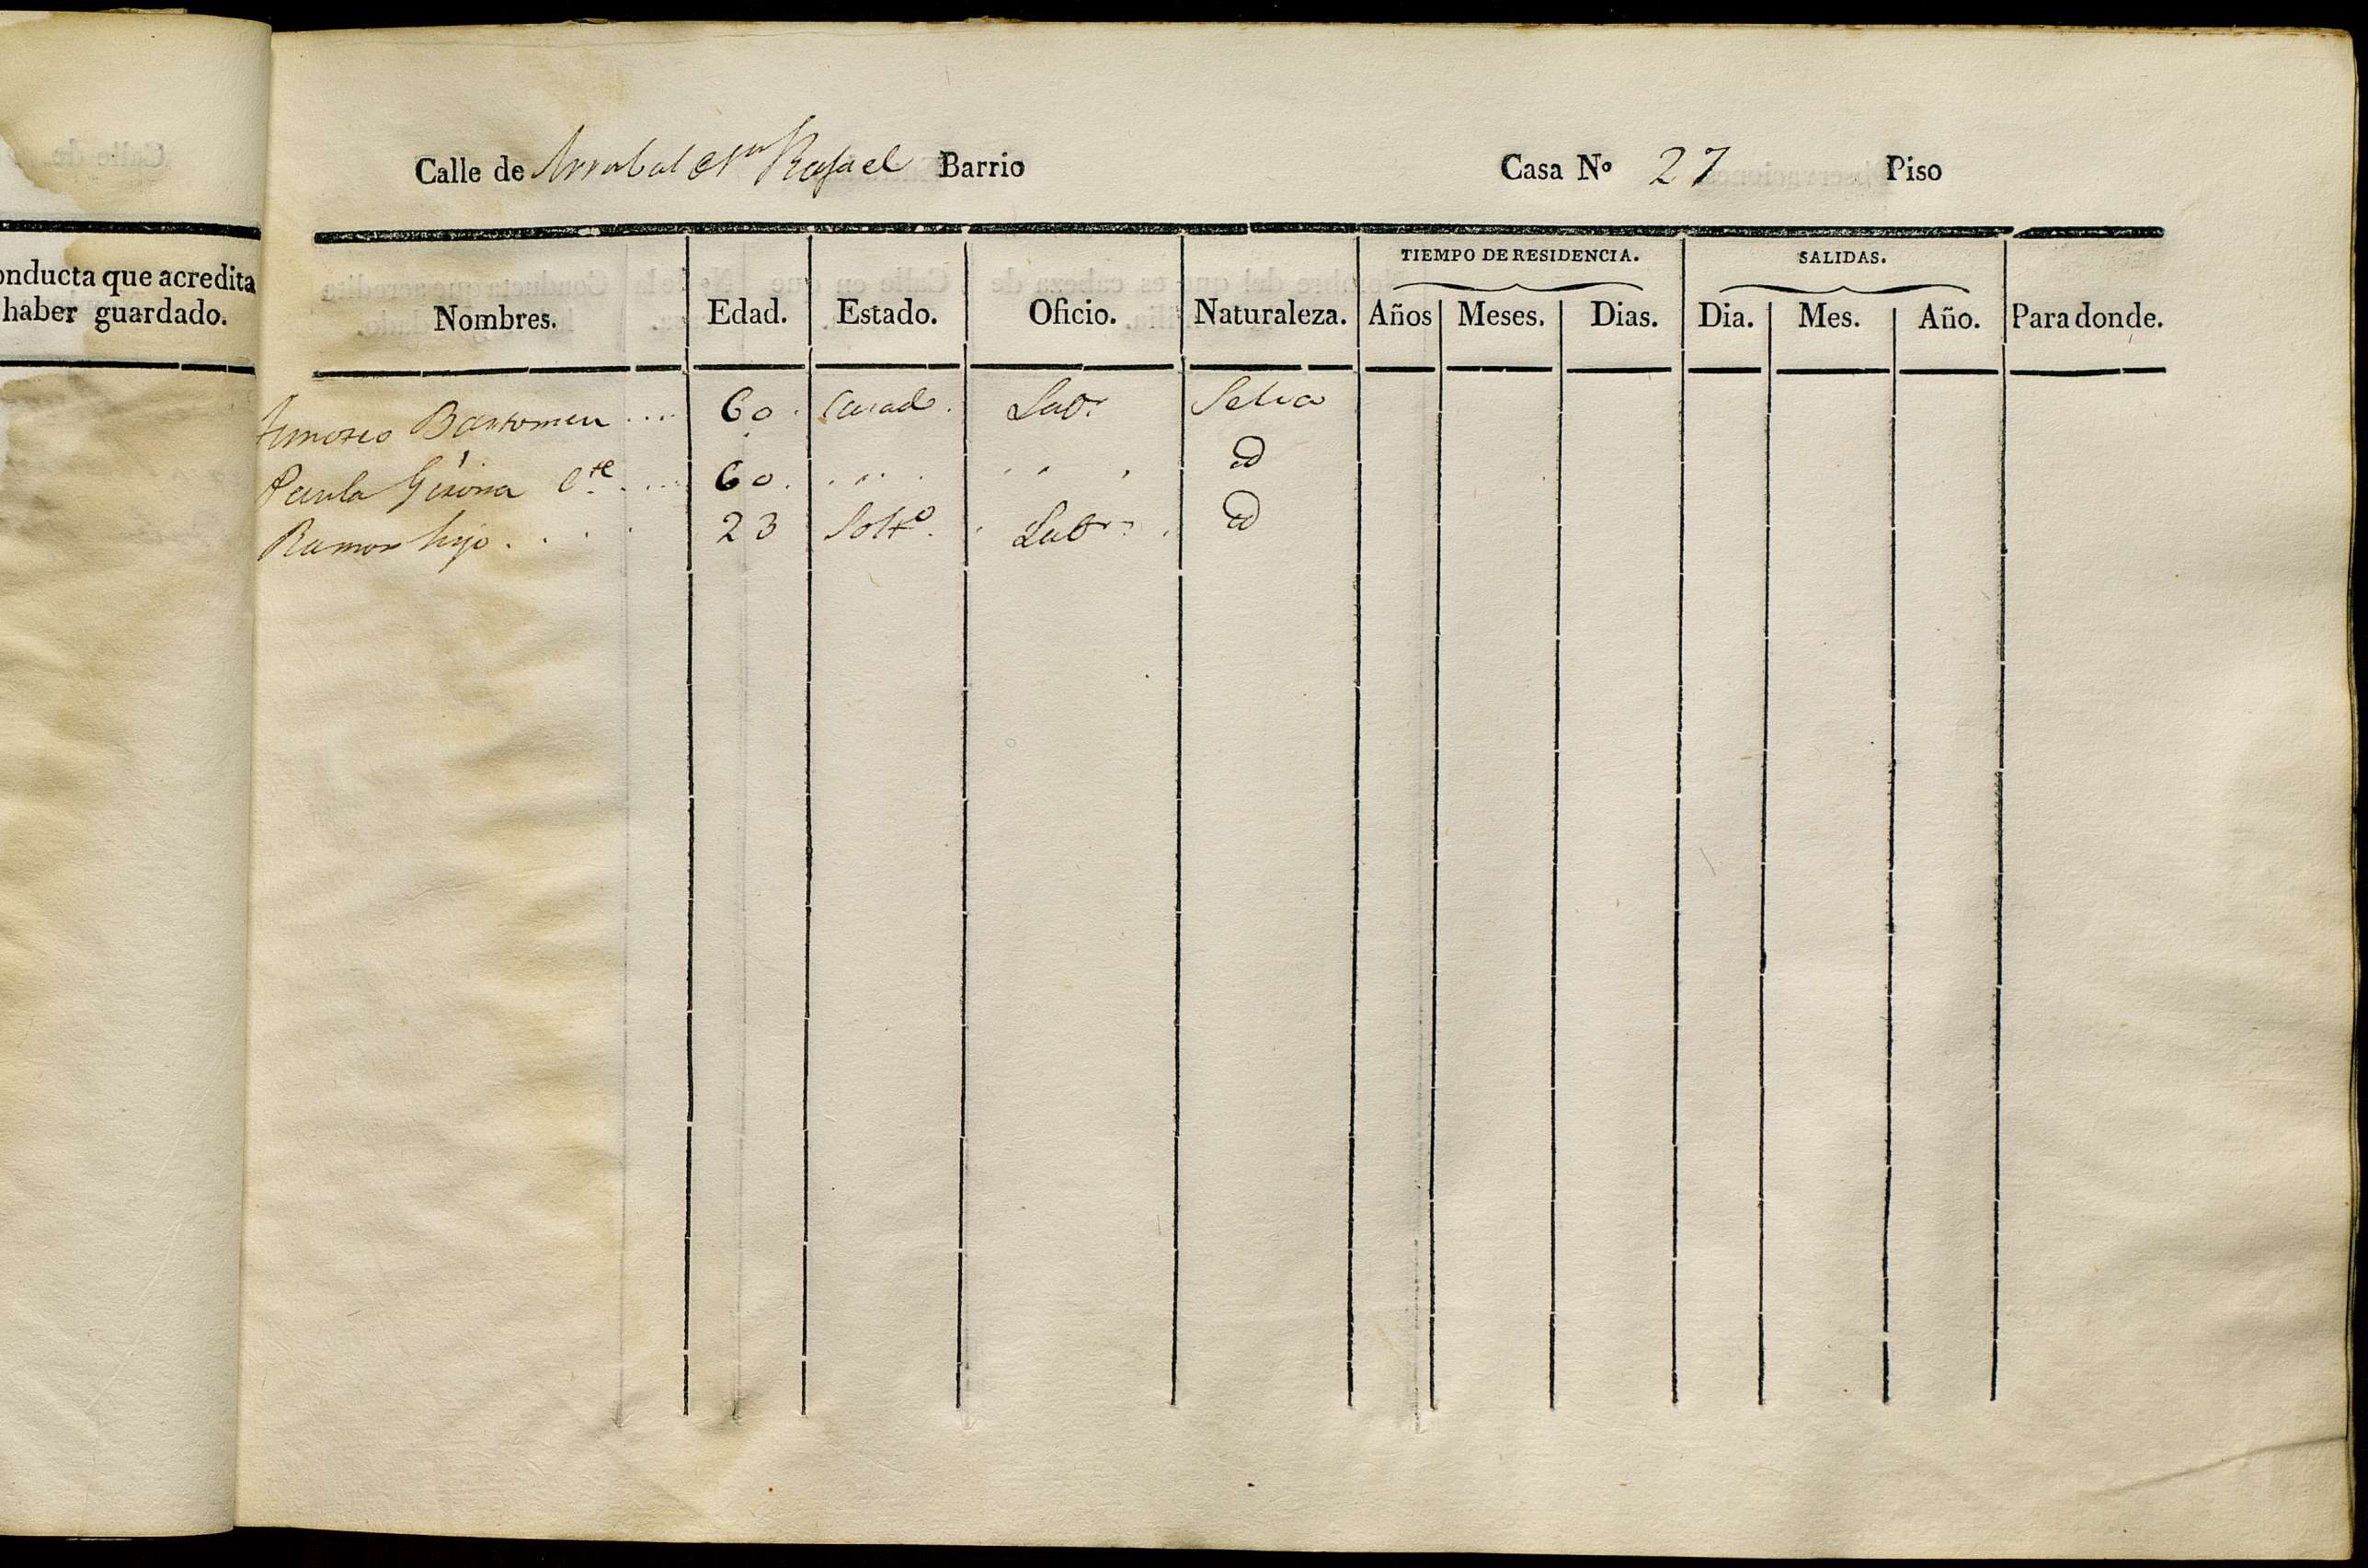 Calle de Arrabal Sn Rafael Barrio Casa Nº 27 Piso
onducta que acredita
haber guardado.
TIEMPO DE RESIDENCIA. SALIDAS.
Nombres. Edad. Estado. Oficio. Naturaleza. Años Meses. Dias. Dia. Mes. Año. Para donde.
Timoteo Bartomeu .... 60. Casado. Labr. Selva
Paula Girona Cte .... 60. id
Ramon hijo . . . . 23 Soltº. Labr. id